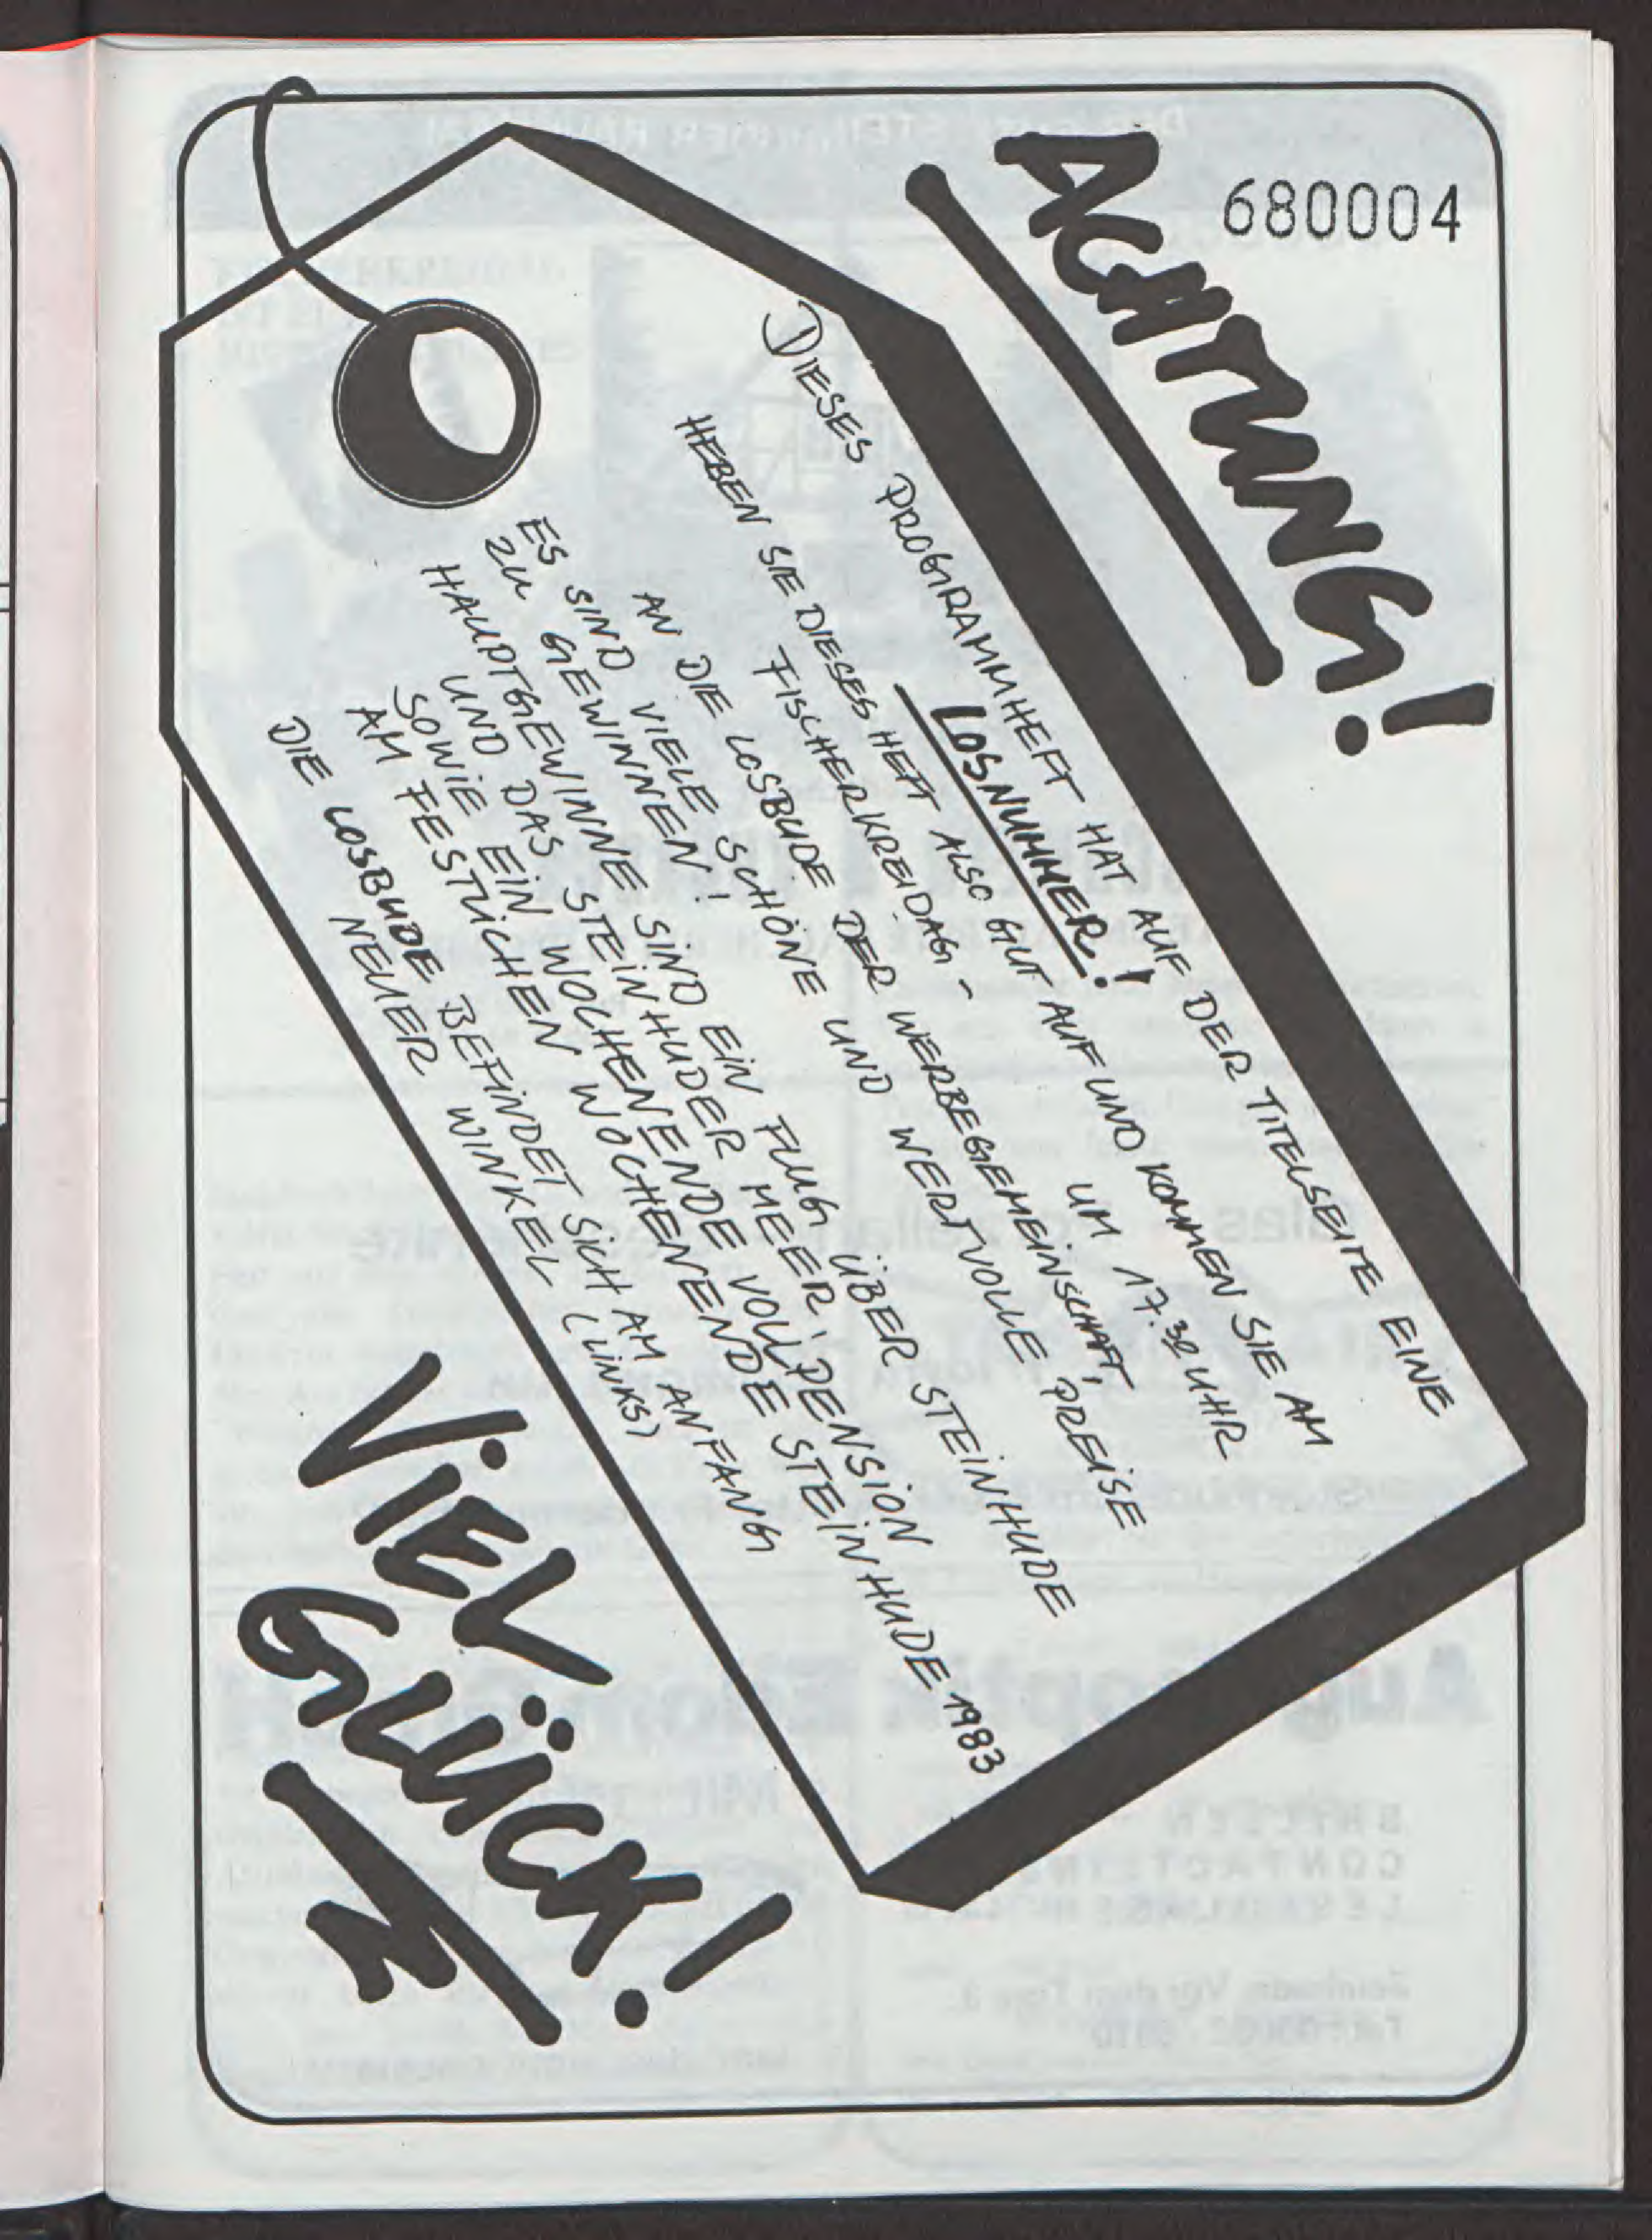 680004
ACHTUNG!
DIESES PROGRAMMHEFT HAT AUF DER TITELSEITE EINE
LOSNUMMER!
HEBEN SIE DIESES HEFT ALSO GUT AUF UND KOMMEN SIE AM
FISCHERKREIDAG - UM 17.30 UHR
AN DIE LOSBUDE DER WERBEGEMEINSCHAFT,
ES SIND VIELE SCHÖNE UND WERTVOLLE PREISE
ZU GEWINNEN!
HAUPTGEWINNE SIND EIN FLUG ÜBER STEINHUDE
UND DAS STEINHUDER MEER,
SOWIE EIN WOCHENENDE VOLLPENSION
AM FESTLICHEN WOCHENENDE STEINHUDE 1983
DIE LOSBUDE BEFINDET SICH AM ANFANG
NEUER WINKEL (LINKS)
VIEL
GLÜCK!